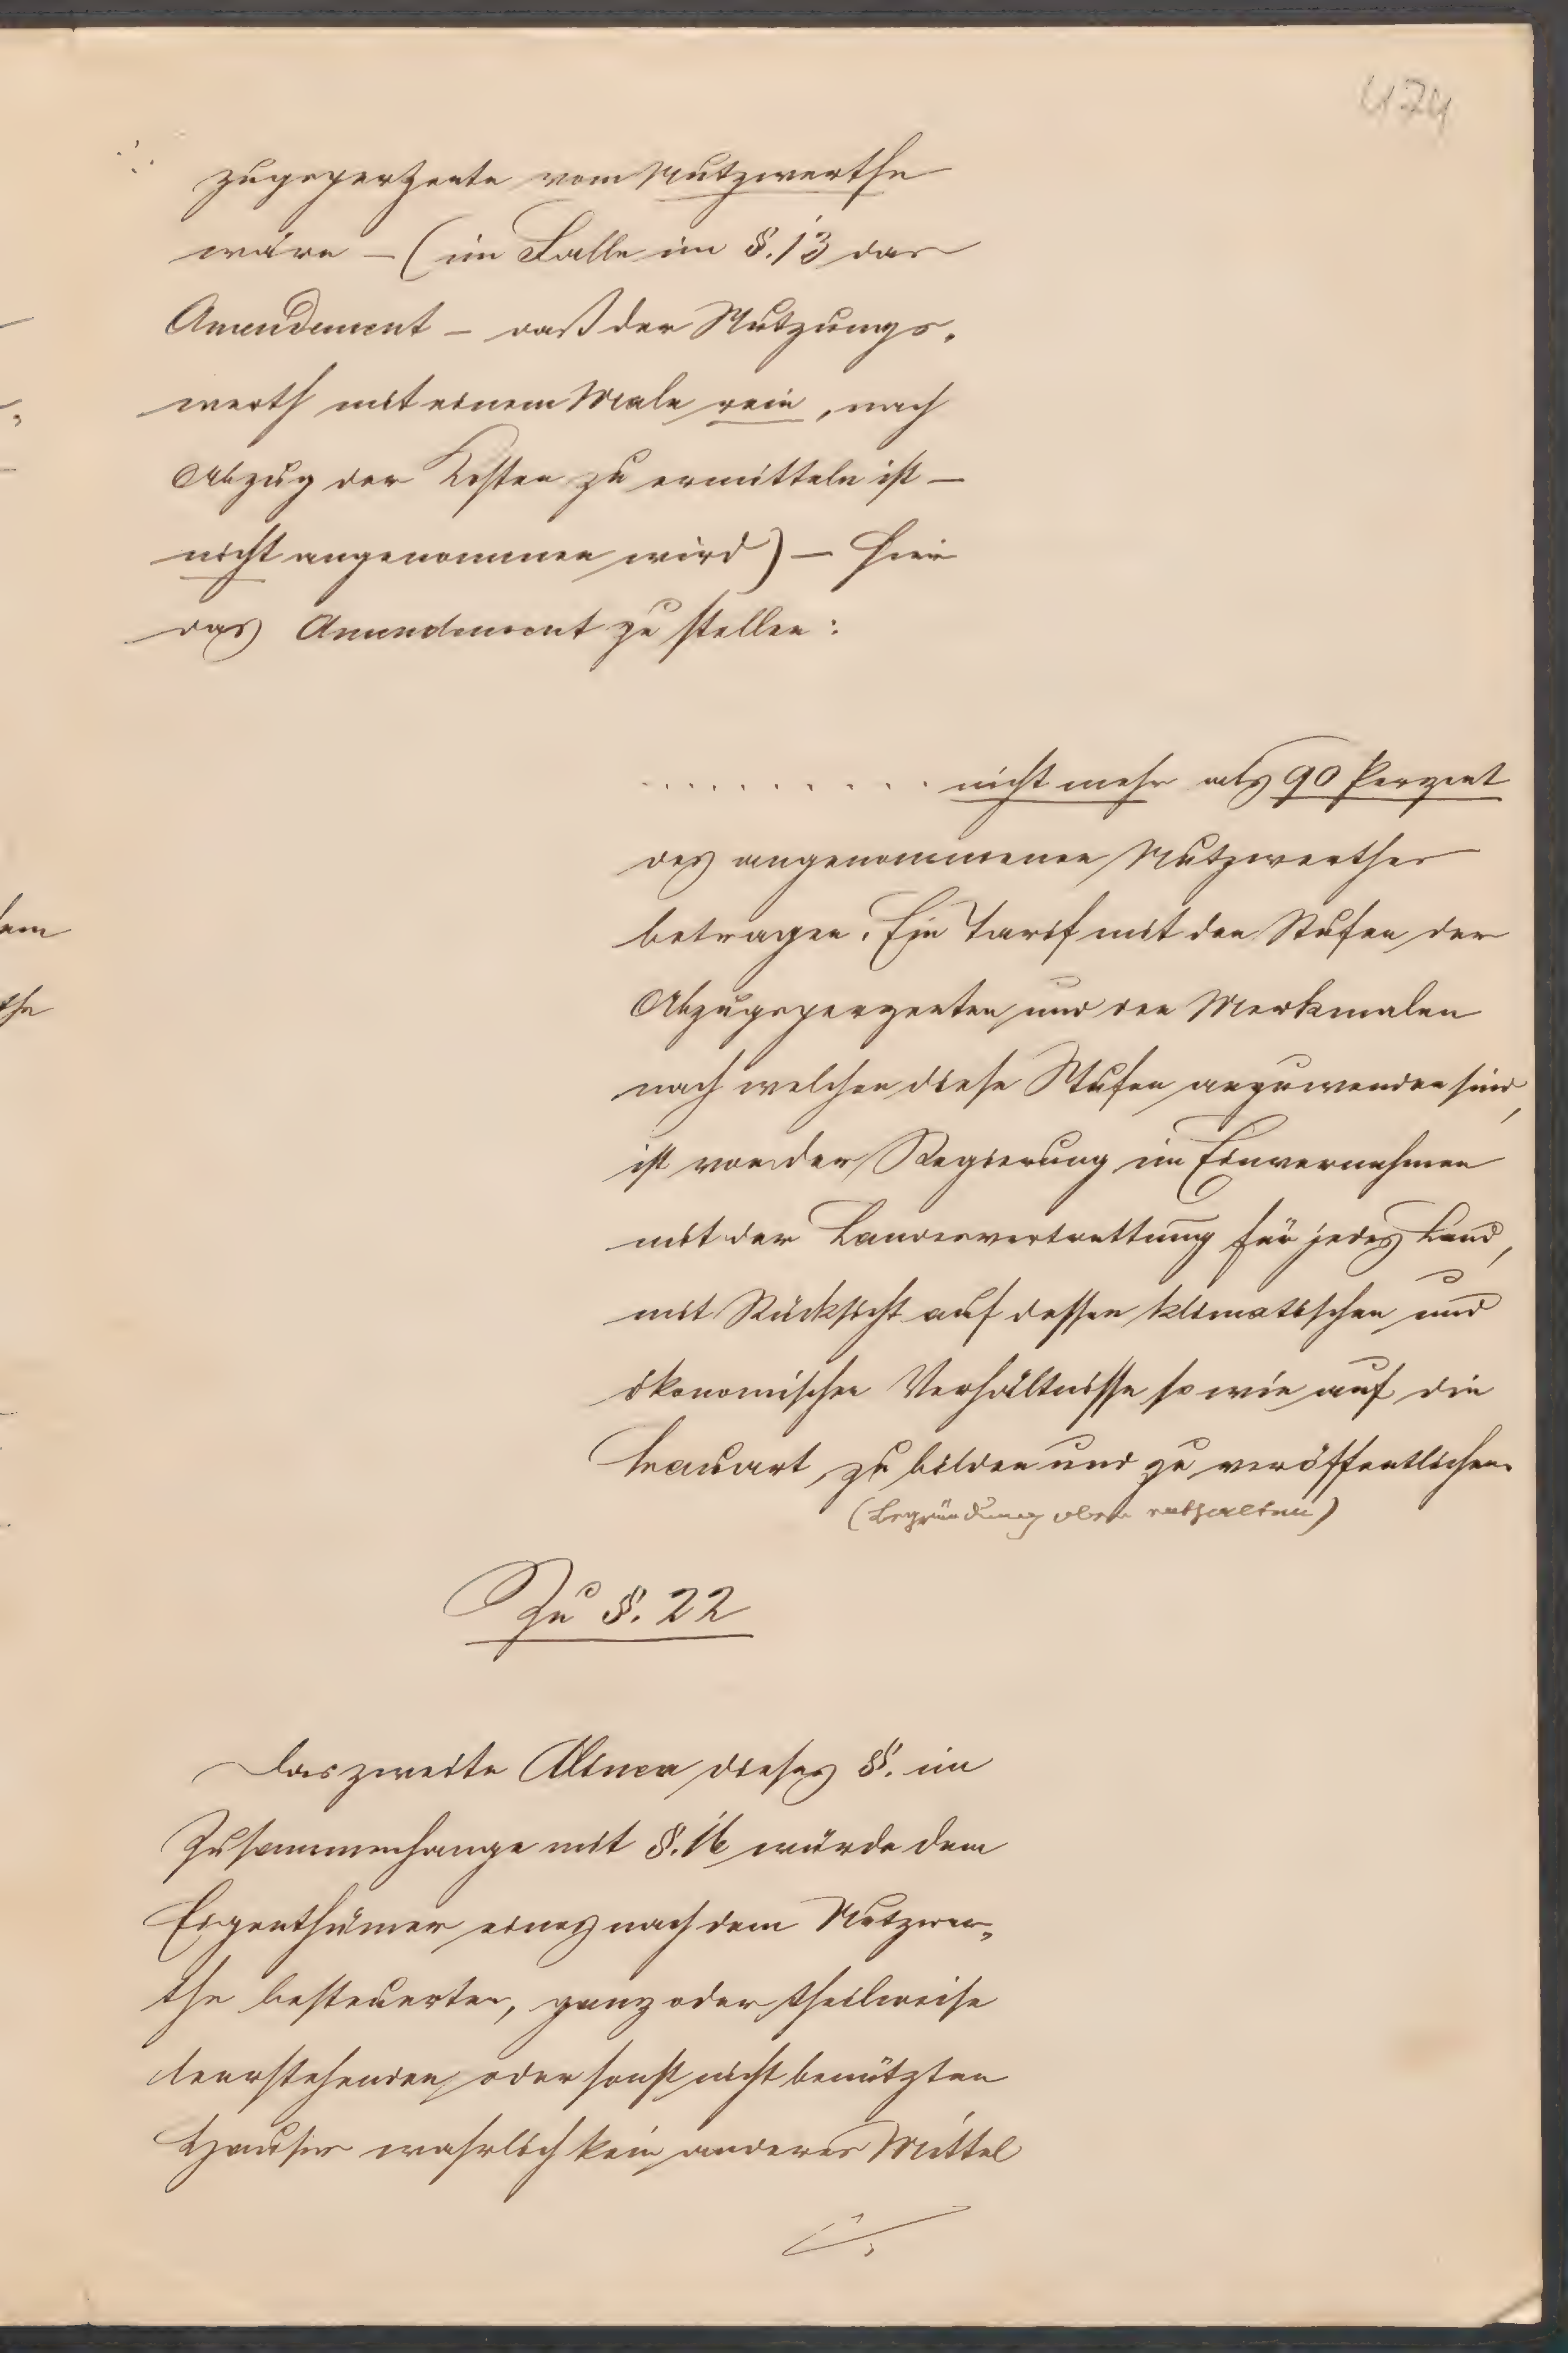 474
zugsperzente vom Nutzwerthe
wäre – (im Falle im §. 13 das
Amendement – daß der Nutzungs-
werth mit einem Male rein, nach
Abzug der Kosten zu ermitteln ist –
nicht angenommen wird) – hier
das Amendement zu stellen:
.......... nicht mehr als 90 Perzent
des angenommenen Nutzwerthes
betragen. Ein Tarif mit den Stufen der
Abzugsperzenten und den Merkmalen
nach welchen diese Stufen anzuwenden sind,
ist von der Regierung im Einvernehmen
mit der Landesvertrettung für jedes Land,
mit Rücksicht auf dessen klimatischen und
ökonomischen Verhältnisse so wie auf die
Bauart zu bilden und zu veröffentlichen.
(Begründung oben enthalten)
Zu §. 22
Das zweite Alinea dieses §. im
Zusammenhange mit §. 16 würde dem
Eigenthümer eines nach dem Nutzwer-
the besteuerten, ganz oder theilweise
leerstehenden oder sonst nicht benützten
Hauses wahrlich kein anderes Mittel